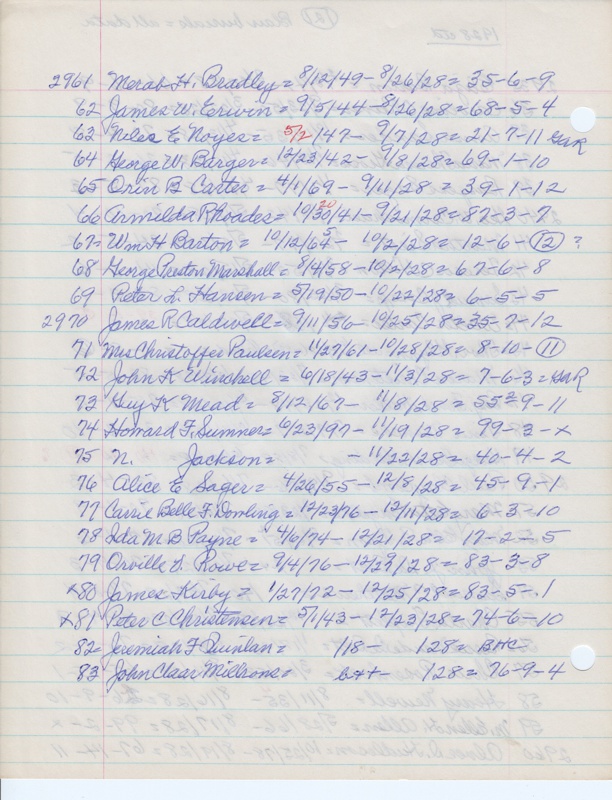 2961 Merab H. Bradley = 8/12/49 - 8/26/28 = 35-6-9
62 James W. Erwin = 9/5/44 - 8/26/28 = 68-5-4
63 Niles E Noyes = 5/2/47 - 9/7/28 = 21-7-11 GAR
64 George W. Barger = 12/23/42 - 9/8/28 = 69-1-10
65 Orin B Carter = 4/1/69 - 9/11/28 = 39-1-12
66 Armilda Rhoades = 10/30/41 - 9/21/28 = 87-3-7
20
67 = Wm H Barton = 10/12/64 - 10/2/28 = 12-6-(12) ?
5
68 George Preston Marshall = 8/4/58 - 10/2/28 = 67-6-8
69 Peter L. Hansen = 5/19/50 - 10/22/28 = 6-5-5
2970 James R Caldwell = 9/11/56 - 10/25/28 = 35-7-12
71 Mrs Christoffer Paulsen = 11/27/61 - 10/28/28 = 8-10-(11)
72 John K Winchell = 6/18/43 - 11/3/28 = 7-6-3 = GAR
73 Guy K Mead = 8/12/67 - 11/8/28 = 55 2-9-11
74 Howard F. Sumner = 6/23/97 - 11/19/28 = 99-3-x
75 N. Jackson = - 11/22/28 = 40-4-2
76 Alice E Sager = 4/26/55 - 12/8/28 = 45-9-1
77 Carrie Belle F. Dowling = 12/23/76 - 12/11/28 = 6-3-10
78 Ida M B Payne = 4/6/74 - 12/21/28 = 17-2-5
79 Orville S. Rowe = 9/4/76 - 12/29/28 = 83-3-8
x80 James Kirby = 1/27/72 - 12/25/28 = 83-5-.1
x81 Peter C Christensen = 5/1/43 - 12/23/28 = 74-6-10
82 Jeremiah F Quinlan = /18 - 128 = BHC
83 John Claar Millrons = b++ - 128 = 76-9-4